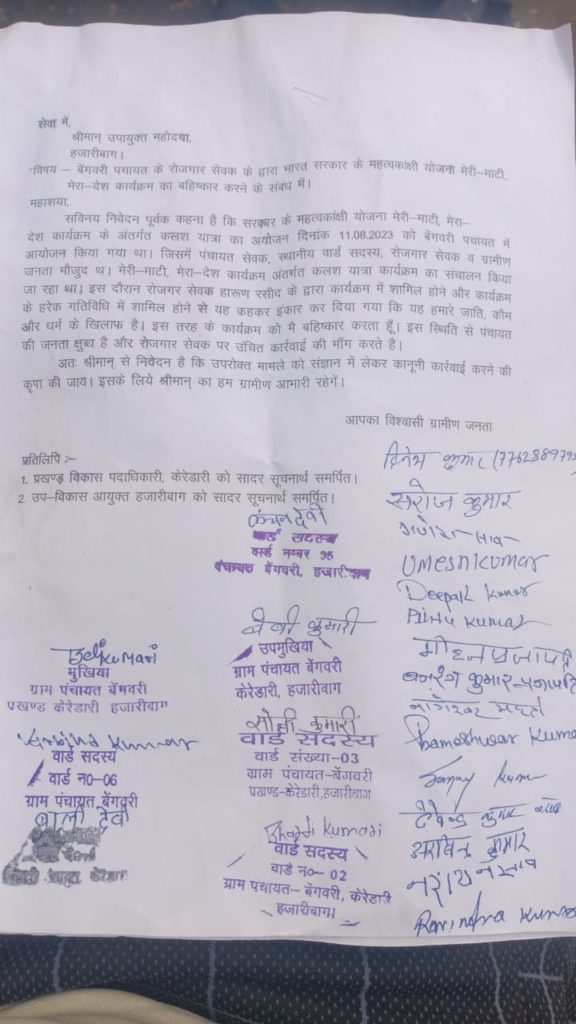 सेवा में,
श्रीमान् उपायुक्त महोदया,
हजारीबाग।
विषय – बेंगवरी पचायत के रोजगार सेवक के द्वारा भारत सरकार के महत्वकांक्षी योजना मेरी–माटी,
मेरा–देश कार्यक्रम का बहिष्कार करने के संबंध में।
महाशया,
सविनय निवेदन पूर्वक कहना है कि सरकार के महत्वकांक्षी योजना मेरी–माटी, मेरा–
देश कार्यक्रम के अंतर्गत कलश यात्रा का अयोजन दिनांक 11.08.2023 को बेंगवरी पंचायत में
आयोजन किया गया था। जिसमें पंचायत सेवक, स्थानीय वार्ड सदस्य, रोजगार सेवक व ग्रामीण
जनता मौजुद थ। मेरी–माटी, मेरा–देश कार्यक्रम अंतर्गत कलश यात्रा कार्यक्रम का संचालन किया
जा रहा था। इस दौरान रोजगर सेवक हारूण रसीद के द्वारा कार्यक्रम में शामिल होने और कार्यक्रम
के हरेक गतिविधि में शामिल होने से यह कहकर इंकार कर दिया गया कि यह हमारे जाति, कौम
और धर्म के खिलाफ है। इस तरह के कार्यक्रम को मै बहिष्कार करता हूँ। इस स्थिति से पंचायत
की जनता क्षुब्ध है और रोजगार सेवक पर उचित कार्रवाई की माँग करते है।
अतः श्रीमान् से निवेदन है कि उपरोक्त मामले को संज्ञान में लेकर कानूनी कार्रवाई करने की
कृपा की जाय। इसके लिये श्रीमान् का हम ग्रामीण आभारी रहेगें।
आपका विश्वासी ग्रामीण जनता
प्रतिलिपि :–
1. प्रखण्ड विकास पदाधिकारी, केरेडारी को सादर सूचनार्थ समर्पित।
2. उप–विकास आयुक्त हजारीबाग को सादर सूचनार्थ समर्पित।
दिनेश कुमार (776288979
सरोज कुमार
गणेश साव
Umesh kumar
Deepak kumar
Pintu kumar
मोहन प्रजापति
बजरंग कुमार प्रजापति
नागेश्वर महतो
Kumar
Sanjay Kum
देवेन्द्र कुमार
अरविन्द कुमार
नरायन साव
Ravindra Kumar
कंचन देवी
वार्ड सदस्य
वार्ड नम्बर
पंचायत बेंगवरी, हजारीबाग
बेबी कुमारी
उपमुखिया
ग्राम पंचायत बेंगवरी
केरेडारी, हजारीबाग
Kumari
मुखिया
ग्राम पंचायत बेंगवरी
प्रखण्ड केरेडारी हजारीबाग
कुमारी
वार्ड सदस्य
वार्ड संख्या–03
ग्राम पंचायत–बेंगवरी
प्रखण्ड–केरेडारी,हजारीबाग
kumar
वार्ड सदस्य
वार्ड न0–06
ग्राम पंचायत, बेंगवरी
बाली देवी
Kumari
वार्ड सदस्य
वार्ड न०– 02
ग्राम पंचायत– बेंगवरी, केरेडारी
हजारीबाग।